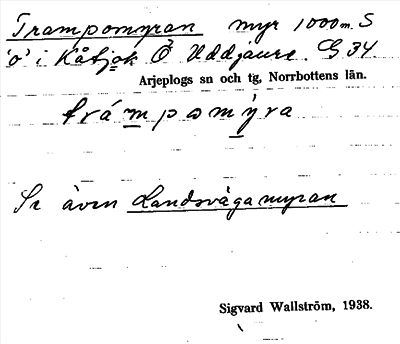 Trampomyran myr 1000 m. S
'o' i Kåtjok Ö Uddjaure. G 34.
Arjeplogs sn och tg, Norrbottens län.
trámpomýra
Se även Landsvägamyran
Sigvard Wallström, 1938.